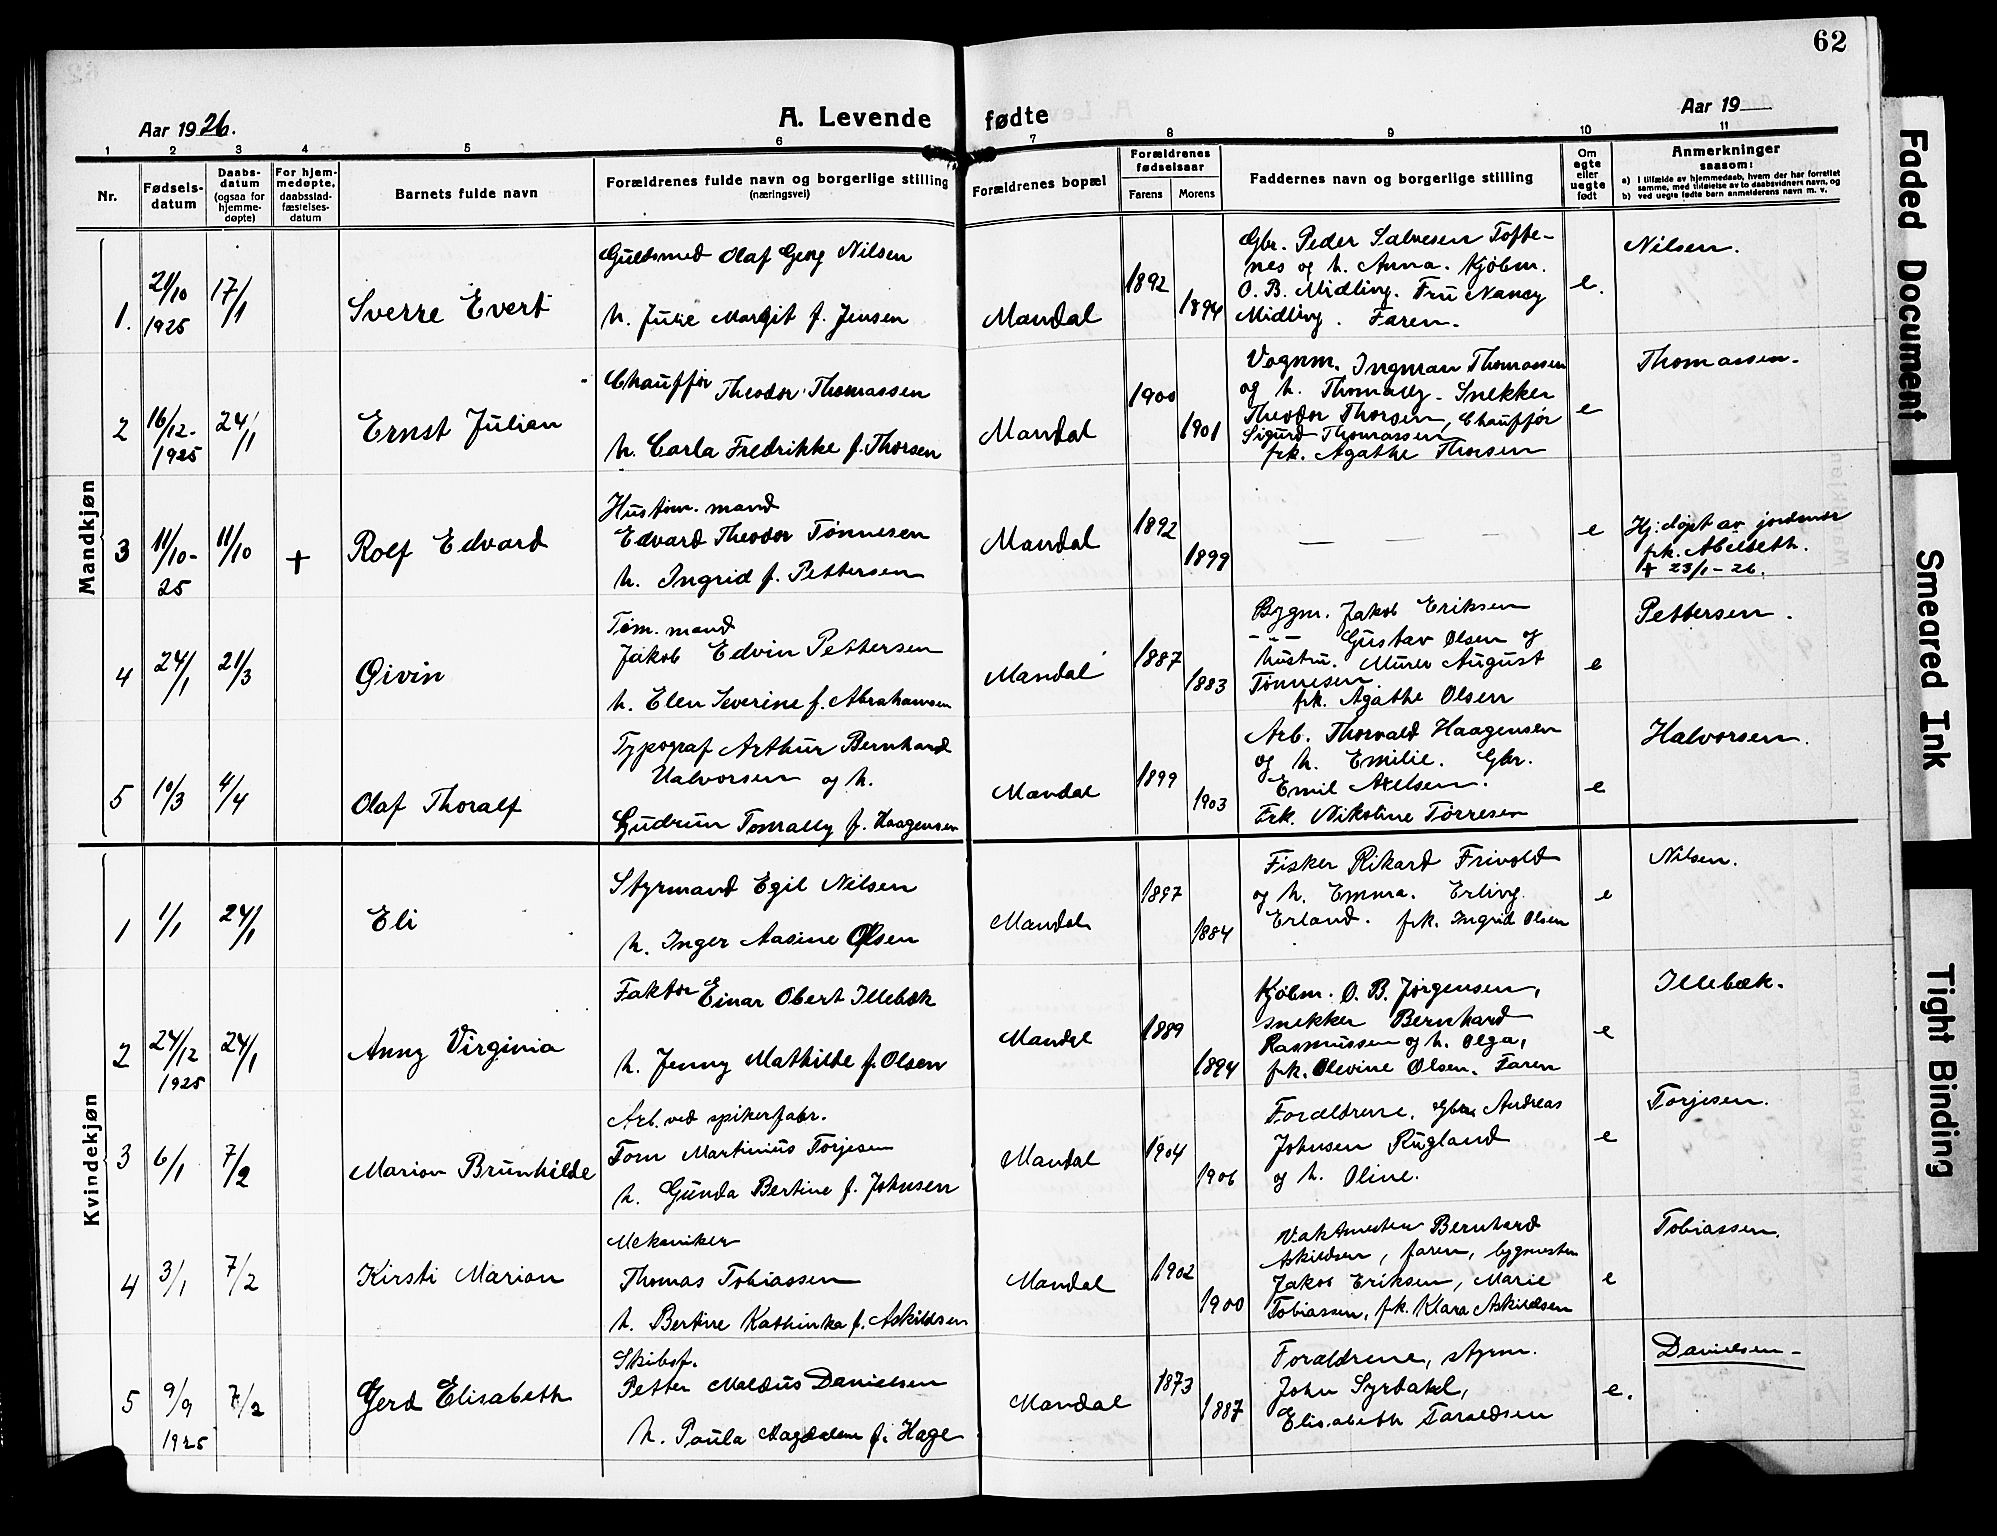 62
Aar 1926.
A. Levende fødte
Aar 19
1 2 3 4 5 6 7 8 9 10 11
Nr.
Fødsels-
datum
Daabs-
datum
(ogsaa for
hjemme-
døpte)
For hjem-
medøpte,
daabsstad-
fæstelses-
datum
Barnets fulde navn
Forældrenes fulde navn og borgerlige stilling
(næringsvei)
Forældrenes bopæl
Forældrenes
fødselsaar
Farens Morens
Faddernes navn og borgerlige stilling
Om
egte
eller
uegte
født
Anmerkninger
saasom:
a) I tilfælde av hjemmedaab, hvem der har forrettet
samme, med tilføielse av to daabsvidners navn, og
b) ved uegte fødte barn anmelderens navn m. v.
Mandkjøn
1.
21/10
1925
17/1
Sverre Evert
Guldsmed Olaf Georg Nilsen
h. Julie Margit f. Jensen
Mandal
1892
1894
Gbr. Peder Salvesen Tofte-
nes og h. Anna. Kjøbm.
O. B. Midling. Fru Nancy
Midling. Faren.
e.
Nilsen.
2
16/12-
1925
24/1
Ernst Julian
Chauffør Theodor Thomassen
h. Carla Fredrikke f. Thorsen
Mandal
1900
1901
Vognm. Ingman Thomassen
og h. Thomally. Snekker
Theodor Thorsen, Chauffør
Sigurd Thomassen
frk. Agathe Thorsen
e
Thomassen.
3
11/10-
25
11/10
+
Rolf Edvard
Hustøm. mand
Edvard Theodor Tønnesen
h. Ingrid f. Pettersen
Mandal
1892
1899
— — —
e
Hj. døpt av jordmor
frk. Abelseth.
+ 23/1-26.
4
24/1
21/3
Øivin
Tøm. mand
Jakob Edvin Pettersen
h. Elen Severine f. Abrahamsen
Mandal
1887
1883
Bygm. Jakob Eriksen
-"- Gustav Olsen og
hustru. Murer August
Tønnesen
frk. Agathe Olsen
e
Pettersen.
5
10/3
4/4
Olaf Thoralf
Typograf Arthur Bernhard
Halvorsen og h.
Gudrun Tomally f. Haagensen
Mandal
1899
1903
Arb. Thorvald Haagensen
og h. Emilie. Gbr.
Emil Axelsen.
Frk. Nikoline Tørresen
e
Halvorsen.
Kvindekjøn
1
1/1
24/1
Eli
Styrmand Egil Nilsen
h. Inger Aasine Olsen
Mandal
1897
1884
Fisker Rikard Frivold
og h. Emma. Erling
Erland. frk. Ingrid Olsen
e
Nilsen.
2
24/12
1925
24/1
Anny Virginia
Faktor Einar Obert Illebæk
h. Jenny Mathilde f. Olsen
Mandal
1889
1894
Kjøbm. O. B. Jørgensen,
snekker Bernhard
Rasmussen og h. Olga,
frk. Olevine Olsen. Faren
e
Illebæk.
3
6/1
7/2
Marion Brunhilde
Arb. ved spikerfabr.
Tom Martinius Torjesen
h. Gunda Bertine f. Johnsen
Mandal
1904
1906
Forældrene. Gbr. Andreas
Johnsen Rugland
og h. Oline.
e
Torjesen.
4
3/1
7/2
Kirsti Marion
Mekaniker
Thomas Tobiassen
h. Bertine Kathinka f. Askildsen
Mandal
1902
1900
Vaktmester Bernhard
Askildsen, faren, bygmester
Jakob Eriksen, Marie
Tobiassen, frk. Klara Askildsen
e
Tobiassen.
5
9/9
1925
7/2
Gerd Elisabeth
Skibsf.
Petter Maldus Danielsen
h. Paula Magdalene f. Hage
Mandal
1873
1887
Forældrene, styrm.
John Syrdahl,
Elisabeth Taraldsen
e.
Danielsen-
Faded Document
Smeared Ink
Tight Binding